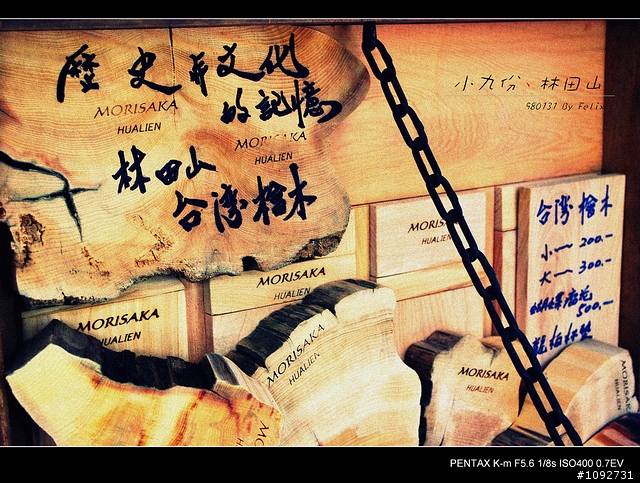 歷史與文化
的記憶
MORISAKA
HUALIEN
HUALIEN
林田山
台灣檜木
小九份、林田山
980131 By Felix
MORISAKA
HUALIEN
HUALIEN
台灣檜木
小一 200.-
大一 300.-
500.-
MORISAKA
HUALIEN
MORISAKA
HUALIEN
MORISAKA
HUALIEN
MORISAKA
HUALIEN
PENTAX K-m F5.6 1/8s ISO400 0.7EV
#1092731